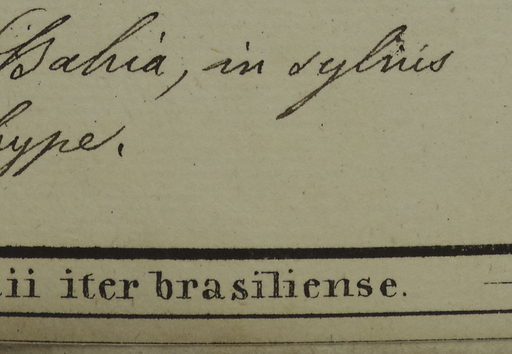 Bahia, in sylvis
hype.
ii iter brasiliense.